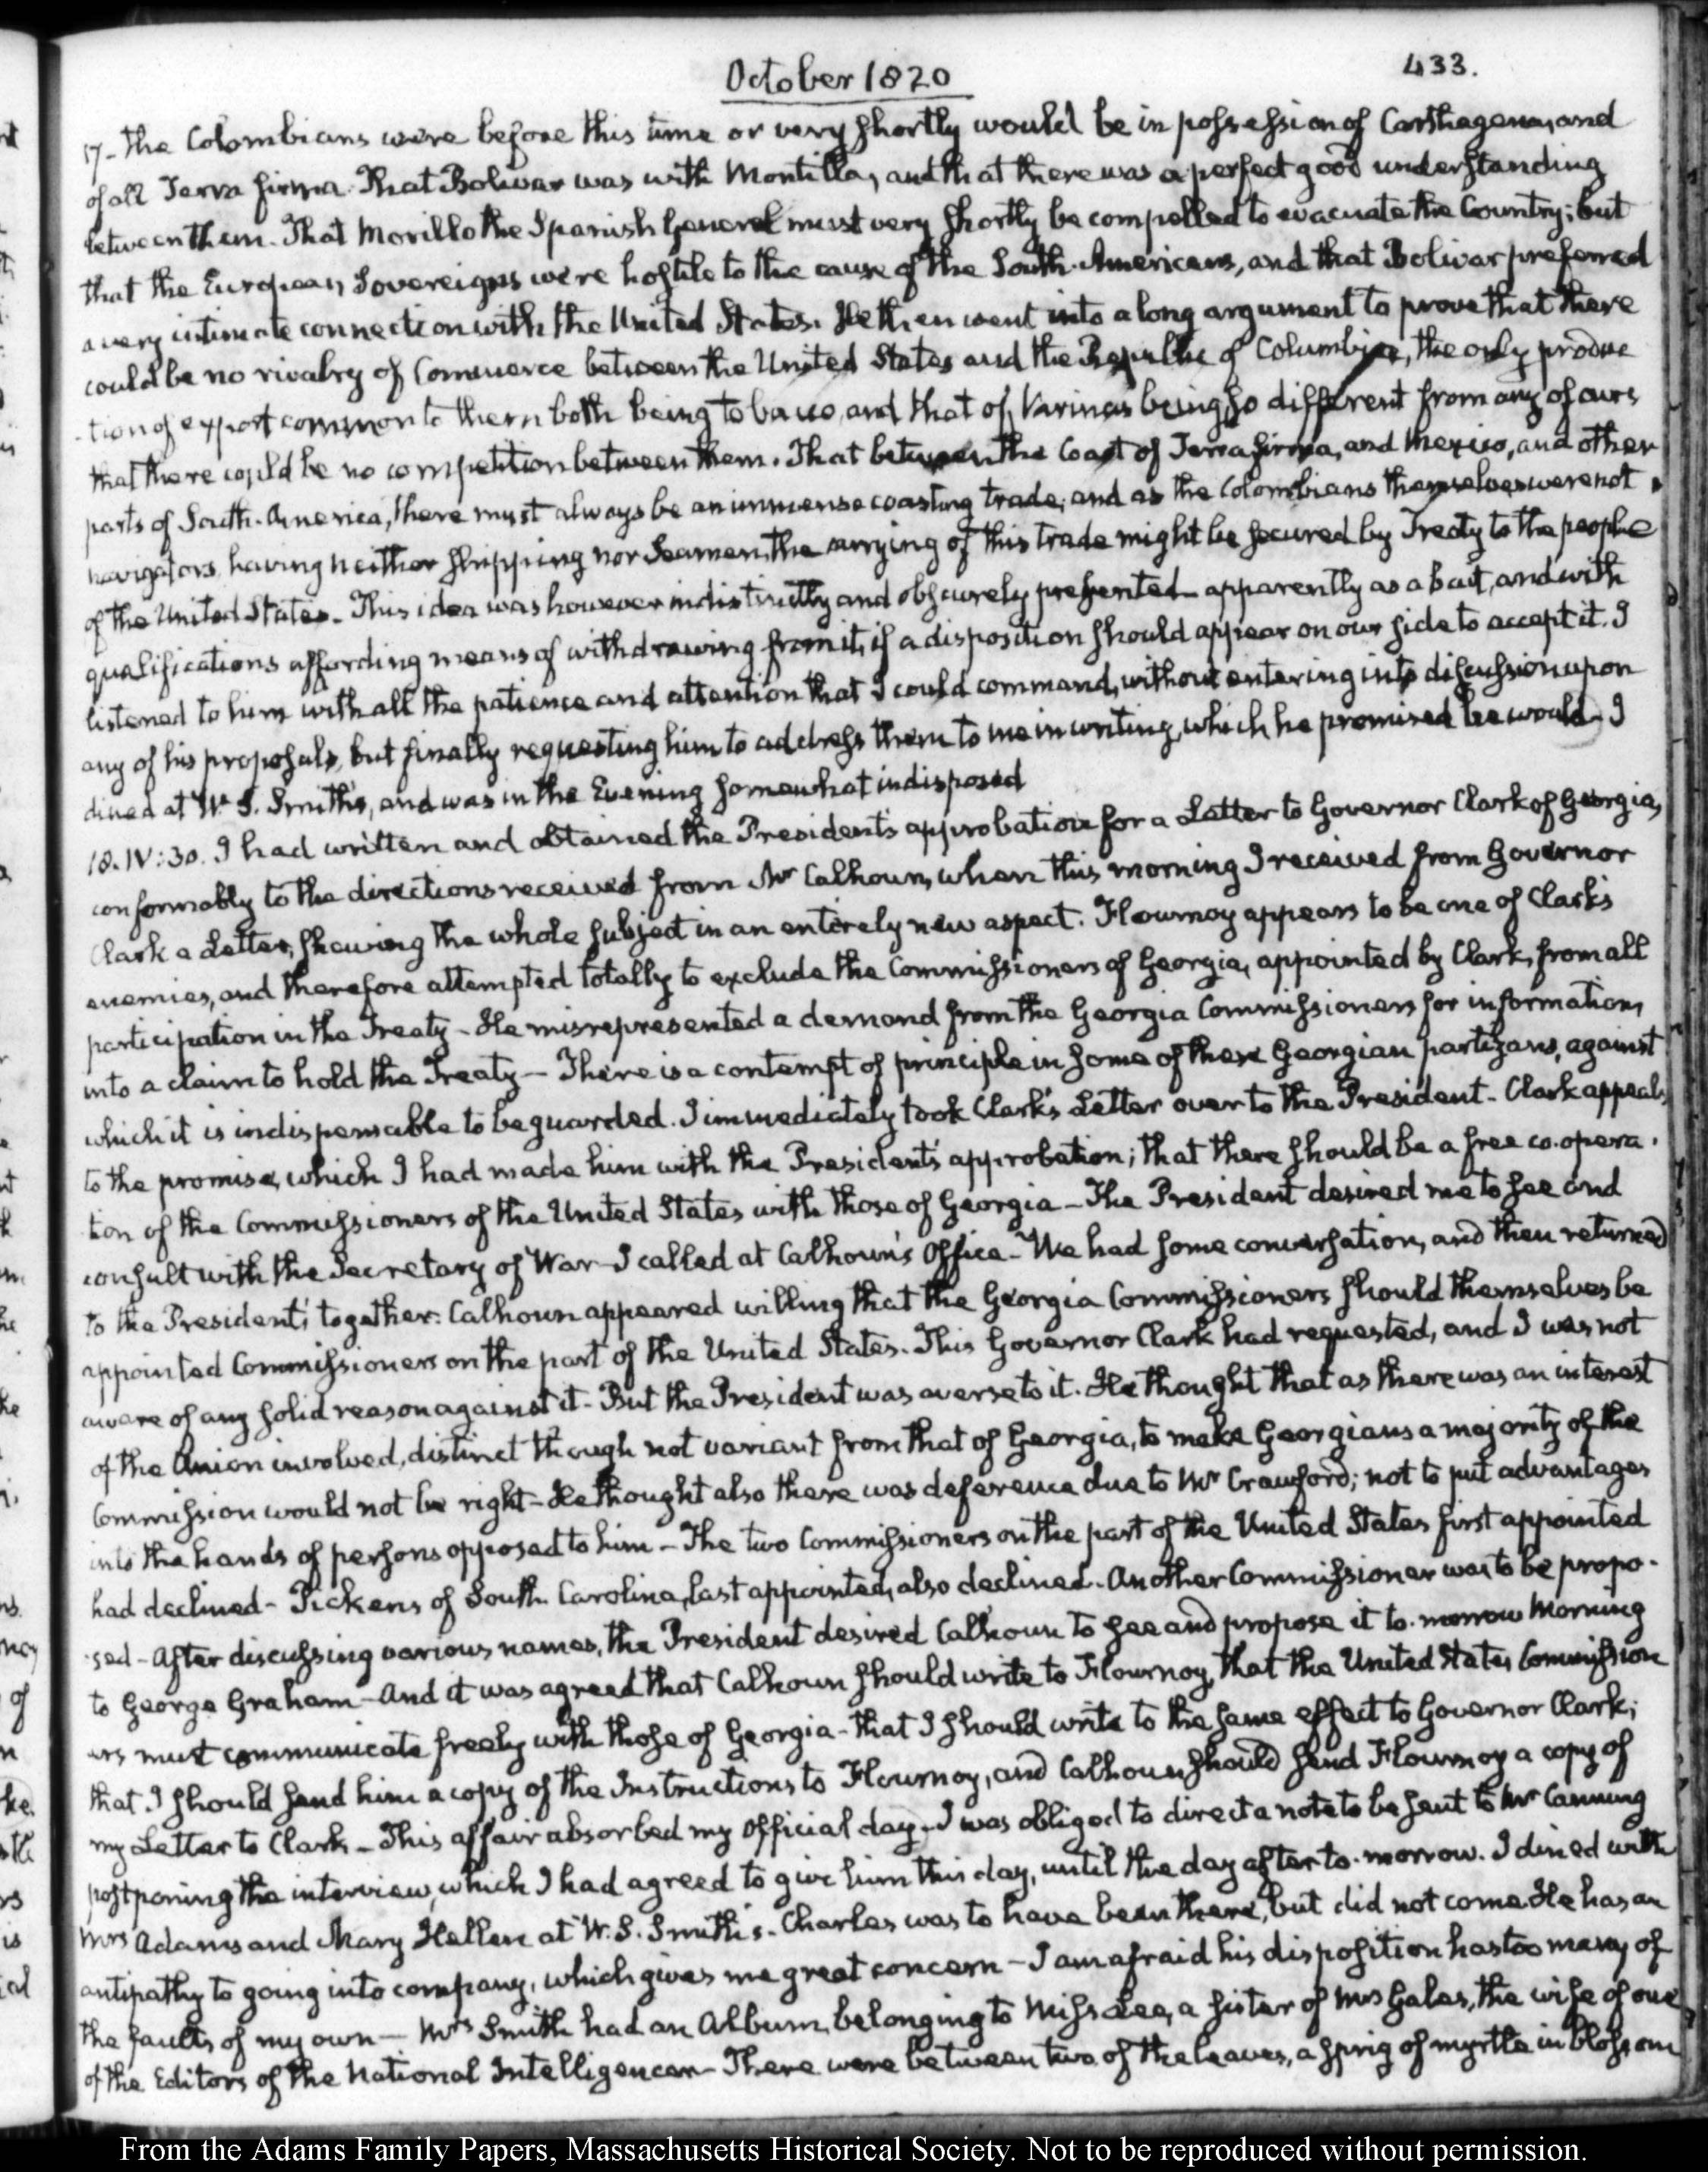 October 1820
433.
17- the Colombians were before this time or very shortly would be in possession of Carthagena, and
of all Terra firma. That Bolivar was with Montilla, and that there was a perfect good understanding
between them. That Morillo the Spanish General must very shortly be compelled to evacuate the Country; but
that the European Sovereigns were hostile to the cause of the South-Americans, and that Bolivar preferred
a very intimate connection with the United States. He then went into a long argument to prove that there
could be no rivalry of Commerce between the United States and the Republic of Columbia, the only produc
-tion of export common to them both being tobacco, and that of Varinas being so different from any of ours
that there could be no competition between them. That between the Coast of Terra firma, and Mexico, and other
parts of South-America, there must always be an immense coasting trade; and as the Colombians themselves were not
navigators, having neither shipping nor Seamen, the carrying of this trade might be secured by Treaty to the people
of the United States. This idea was however indistinctly and obscurely presented- apparently as a bait, and with
qualifications affording means of withdrawing from it, if a disposition should appear on our side to accept it. I
listened to him with all the patience and attention that I could command, without entering into discussion upon
any of his proposals, but finally requesting him to address them to me in writing, which he promised he would- I
dined at W. S. Smith's, and was in the Evening somewhat indisposed
18. IV:30. I had written and obtained the President's approbation for a Letter to Governor Clark of Georgia,
conformably to the directions received from Mr Calhoun, when this morning I received from Governor
Clark a Letter, shewing the whole subject in an entirely new aspect. Flournoy appears to be one of Clark's
enemies, and therefore attempted totally to exclude the Commissioners of Georgia, appointed by Clark, from all
participation in the Treaty- He misrepresented a demand from the Georgia Commissioners for information,
into a claim to hold the Treaty- There is a contempt of principle in some of these Georgian partizans, against
which it is indispensable to be guarded. I immediately took Clark's Letter over to the President- Clark appeals
to the promise, which I had made him with the President's approbation; that there should be a free co-opera-
tion of the Commissioners of the United States with those of Georgia- The President desired me to see and
consult with the Secretary of War- I called at Calhoun's Office- We had some conversation, and then returned
to the President's together. Calhoun appeared willing that the Georgia Commissioners should themselves be
appointed Commissioners on the part of the United States. This Governor Clark had requested, and I was not
aware of any solid reason against it- But the President was averse to it. He thought that as there was an interest
of the Union involved, distinct though not variant from that of Georgia, to make Georgians a majority of the
Commission would not be right- He thought also there was deference due to Mr Crawford; not to put advantages
into the hands of persons opposed to him- The two Commissioners on the part of the United States first appointed
had declined- Pickens of South Carolina, last appointed, also declined. Another Commissioner was to be propo-
-sed- After discussing various names, the President desired Calhoun to see and propose it to-morrow Morning
to George Graham- And it was agreed that Calhoun should write to Flournoy, that the United States Commission
ers must communicate freely with those of Georgia- that I should write to the same effect to Governor Clark;
that I should send him a copy of the Instructions to Flournoy, and Calhoun should send Flournoy a copy of
my Letter to Clark- This affair absorbed my Official day- I was obliged to direct a note to be sent to Mr Canning
postponing the interview, which I had agreed to give him this day, until the day after to-morrow. I dined with
Mrs Adams and Mary Hellen at W. S. Smith's. Charles was to have been there, but did not come. He has an
antipathy to going into company, which gives me great concern- I am afraid his disposition has too many of
the faults of my own- Mrs Smith had an Album, belonging to Miss Lee, a sister of Mrs Gales, the wife of one
of the Editors of the National Intelligencer- There were between two of the leaves, a sprig of myrtle in blossom
From the Adams Family Papers, Massachusetts Historical Society. Not to be reproduced without permission.